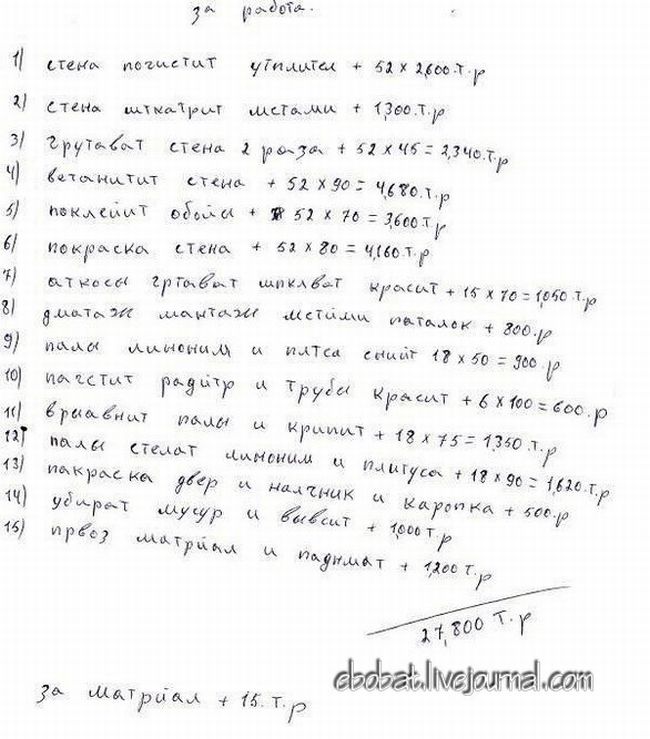 за работа.
1) стена почистит утплител + 52 x 2,600.т.р
2) стена шткатрит местами + 1,300.т.р
3) грутават стена 2 раза + 52 x 45 = 2,340.т.р
4) ветанитит стена + 52 x 90 = 4,680.т.р
5) поклейит обойи + 52 x 70 = 3,600.т.р
6) покраска стена + 52 x 80 = 4,160.т.р
7) аткосы гртават шпклват красит + 15 x 70 = 1,050.т.р
8) дматаж мантаж местами паталок + 800.р
9) палы линоним и плтса снийт 18 x 50 = 900.р
10) пагстит радитр и трубы красит + 6 x 100 = 600.р
11) врыавнит палы и крипит + 18 x 75 = 1,350.т.р
12) палы стелат линоним и плитуса + 18 x 90 = 1,620.т.р
13) пакраска двер и налчник и каропка + 500.р
14) убират мусур и вывсит + 1,000 т.р
15) првоз матрйал и паднмат + 1,200 т.р
27,800 т.р
за матрйал + 15.т.р
ebobat.livejournal.com